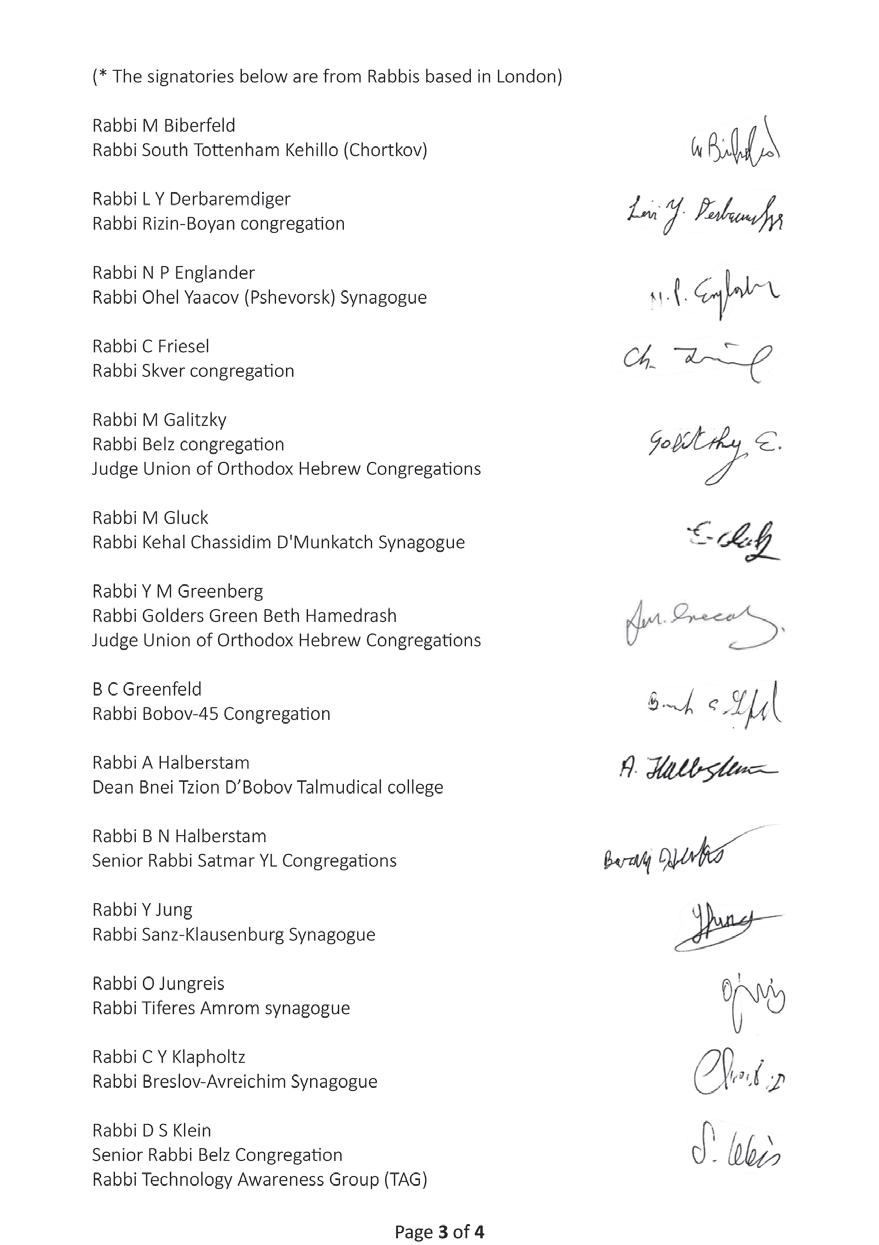 (* The signatories below are from Rabbis based in London)
Rabbi M Biberfeld
Rabbi South Tottenham Kehillo (Chortkov)
Rabbi L Y Derbaremdiger
Rabbi Rizin-Boyan congregation
Rabbi N P Englander
Rabbi Ohel Yaacov (Pshevorsk) Synagogue
Rabbi C Friesel
Rabbi Skver congregation
Ch.
Rabbi M Galitzky
Rabbi Belz congregation
Judge Union of Orthodox Hebrew Congregations
Rabbi M Gluck
Rabbi Kehal Chassidim D'Munkatch Synagogue
Rabbi Y M Greenberg
Rabbi Golders Green Beth Hamedrash
Judge Union of Orthodox Hebrew Congregations
B C Greenfeld
Rabbi Bobov-45 Congregation
Rabbi A Halberstam
Dean Bnei Tzion D’Bobov Talmudical college
A.
Rabbi B N Halberstam
Senior Rabbi Satmar YL Congregations
Rabbi Y Jung
Rabbi Sanz-Klausenburg Synagogue
YJung
Rabbi O Jungreis
Rabbi Tiferes Amrom synagogue
Rabbi C Y Klapholtz
Rabbi Breslov-Avreichim Synagogue
Rabbi D S Klein
Senior Rabbi Belz Congregation
Rabbi Technology Awareness Group (TAG)
Page 3 of 4